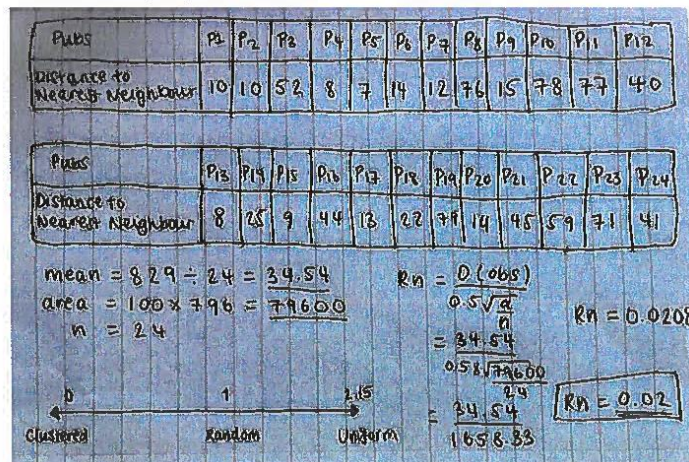 Pubs P1 P2 P3 P4 P5 P6 P7 P8 P9 P10 P11 P12
Distance to Nearest Neighbour 10 10 52 8 7 14 12 76 15 78 77 40
Pubs P13 P14 P15 P16 P17 P18 P19 P20 P21 P22 P23 P24
Distance to Nearest Neighbour 8 25 9 44 13 22 79 14 45 59 71 41
mean = 829 ÷ 24 = 34.54
area = 100 × 796 = 79600
n = 24
Rn = D(obs)
0.5√a
n
= 34.54
0.58√79600
24
= 34.54
1658.83
Rn = 0.0208
Rn = 0.02
0 1 2.15
Clustered Random Uniform